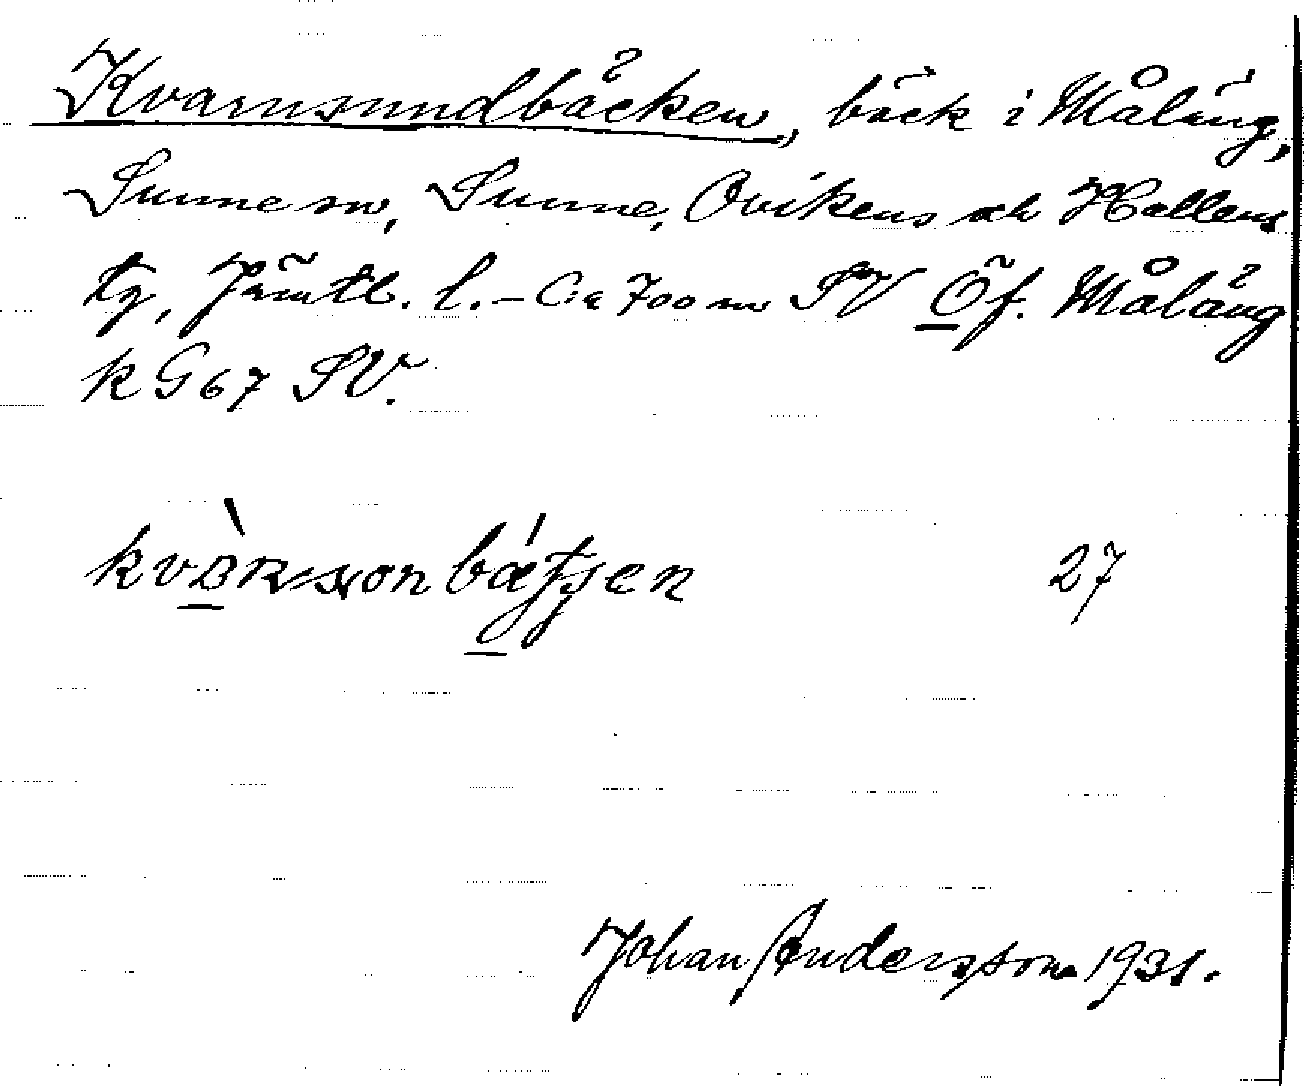 Kvarnsundbäcken, bäck i Måläng,
Sunne sn, Sunne, Ovikens och Hallens
tg, Jämtl. l. – Ca 700 m SV Öf. Måläng
k G67 SV.
27
Johan Andersson 1931.